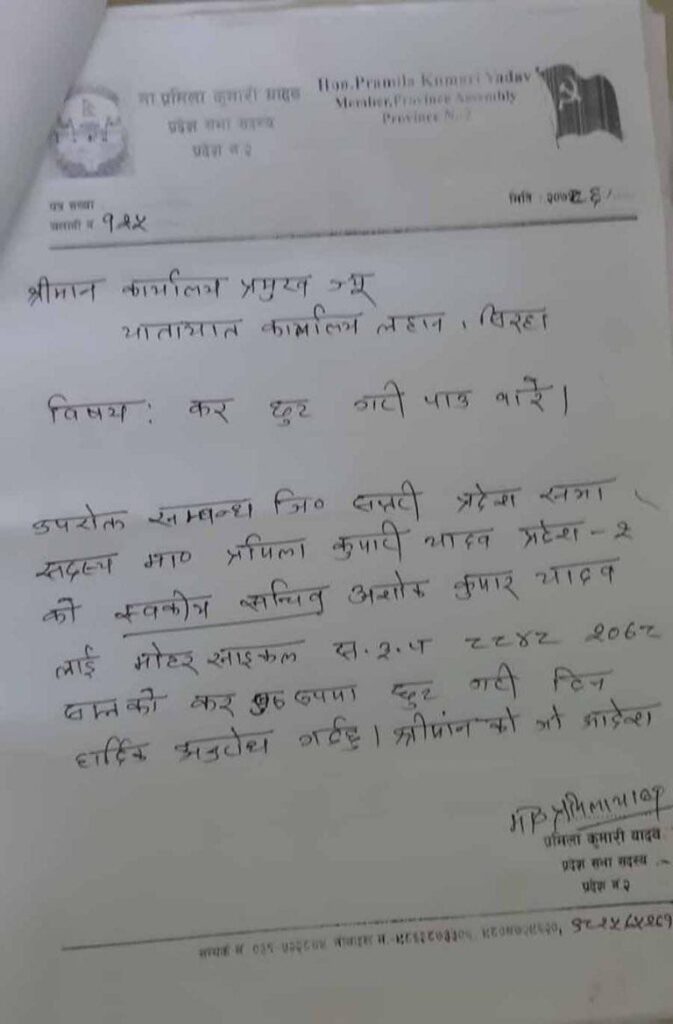 मा प्रमिला कुमारी यादव
प्रदेश सभा सदस्य
प्रदेश नं २
Hon. Pramila Kumari Yadav
Member, Province Assembly
Province N. 2
पत्र संख्या
चलानी नं १२५
मिति : २०७
श्रीमान कार्यालय प्रमुख ज्यू
यातायात कार्यालय लहान, सिरहा
विषय: कर छुट गरी पाउ बारे।
उपरोक्त सम्बन्ध जि० सप्तरी प्रदेश सभा
सदस्य मा० प्रमिला कुमारी यादव प्रदेश-२
को स्वकीय सचिव अशोक कुमार यादव
लाई मोटर साइकल स.२.प ८८४८ २०६८
सालको कर रुपया छुट गरी दिन
हार्दिक अनुरोध गर्दछु। श्रीमांन को जो आदेश
प्रमिला कुमारी यादव
प्रदेश सभा सदस्य
प्रदेश नं २
सम्पर्क नं